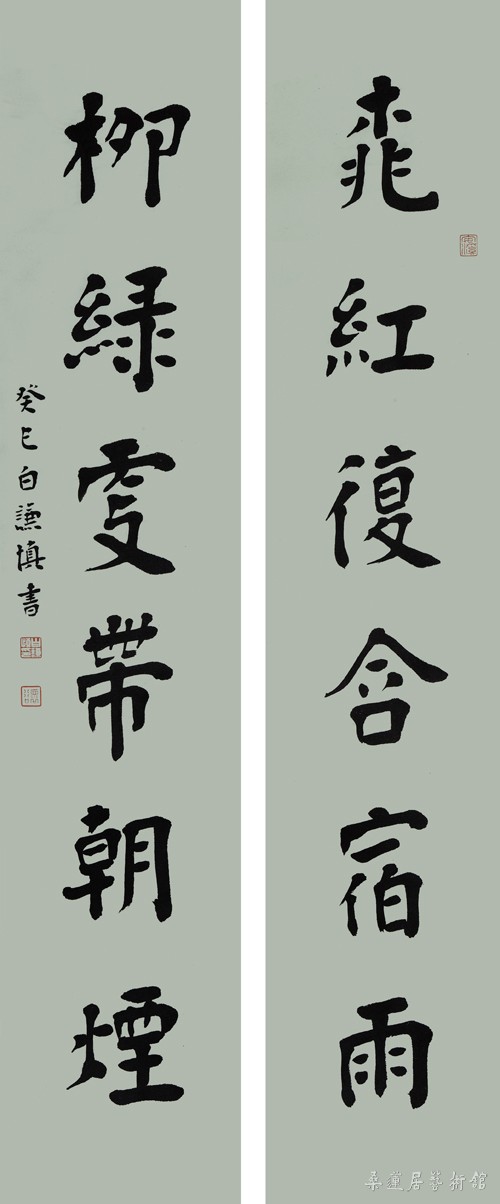 桃紅復含宿雨
柳綠更帶朝煙
癸巳白謙慎書
桑蓮居藝術館